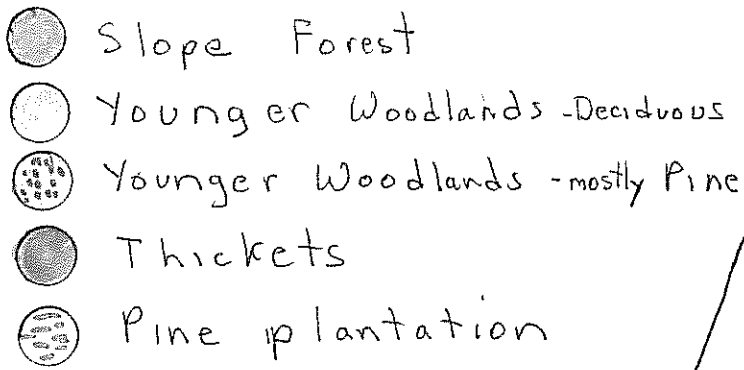 Slope Forest
Younger Woodlands -Deciduous
Younger Woodlands -mostly Pine
Thickets
Pine plantation